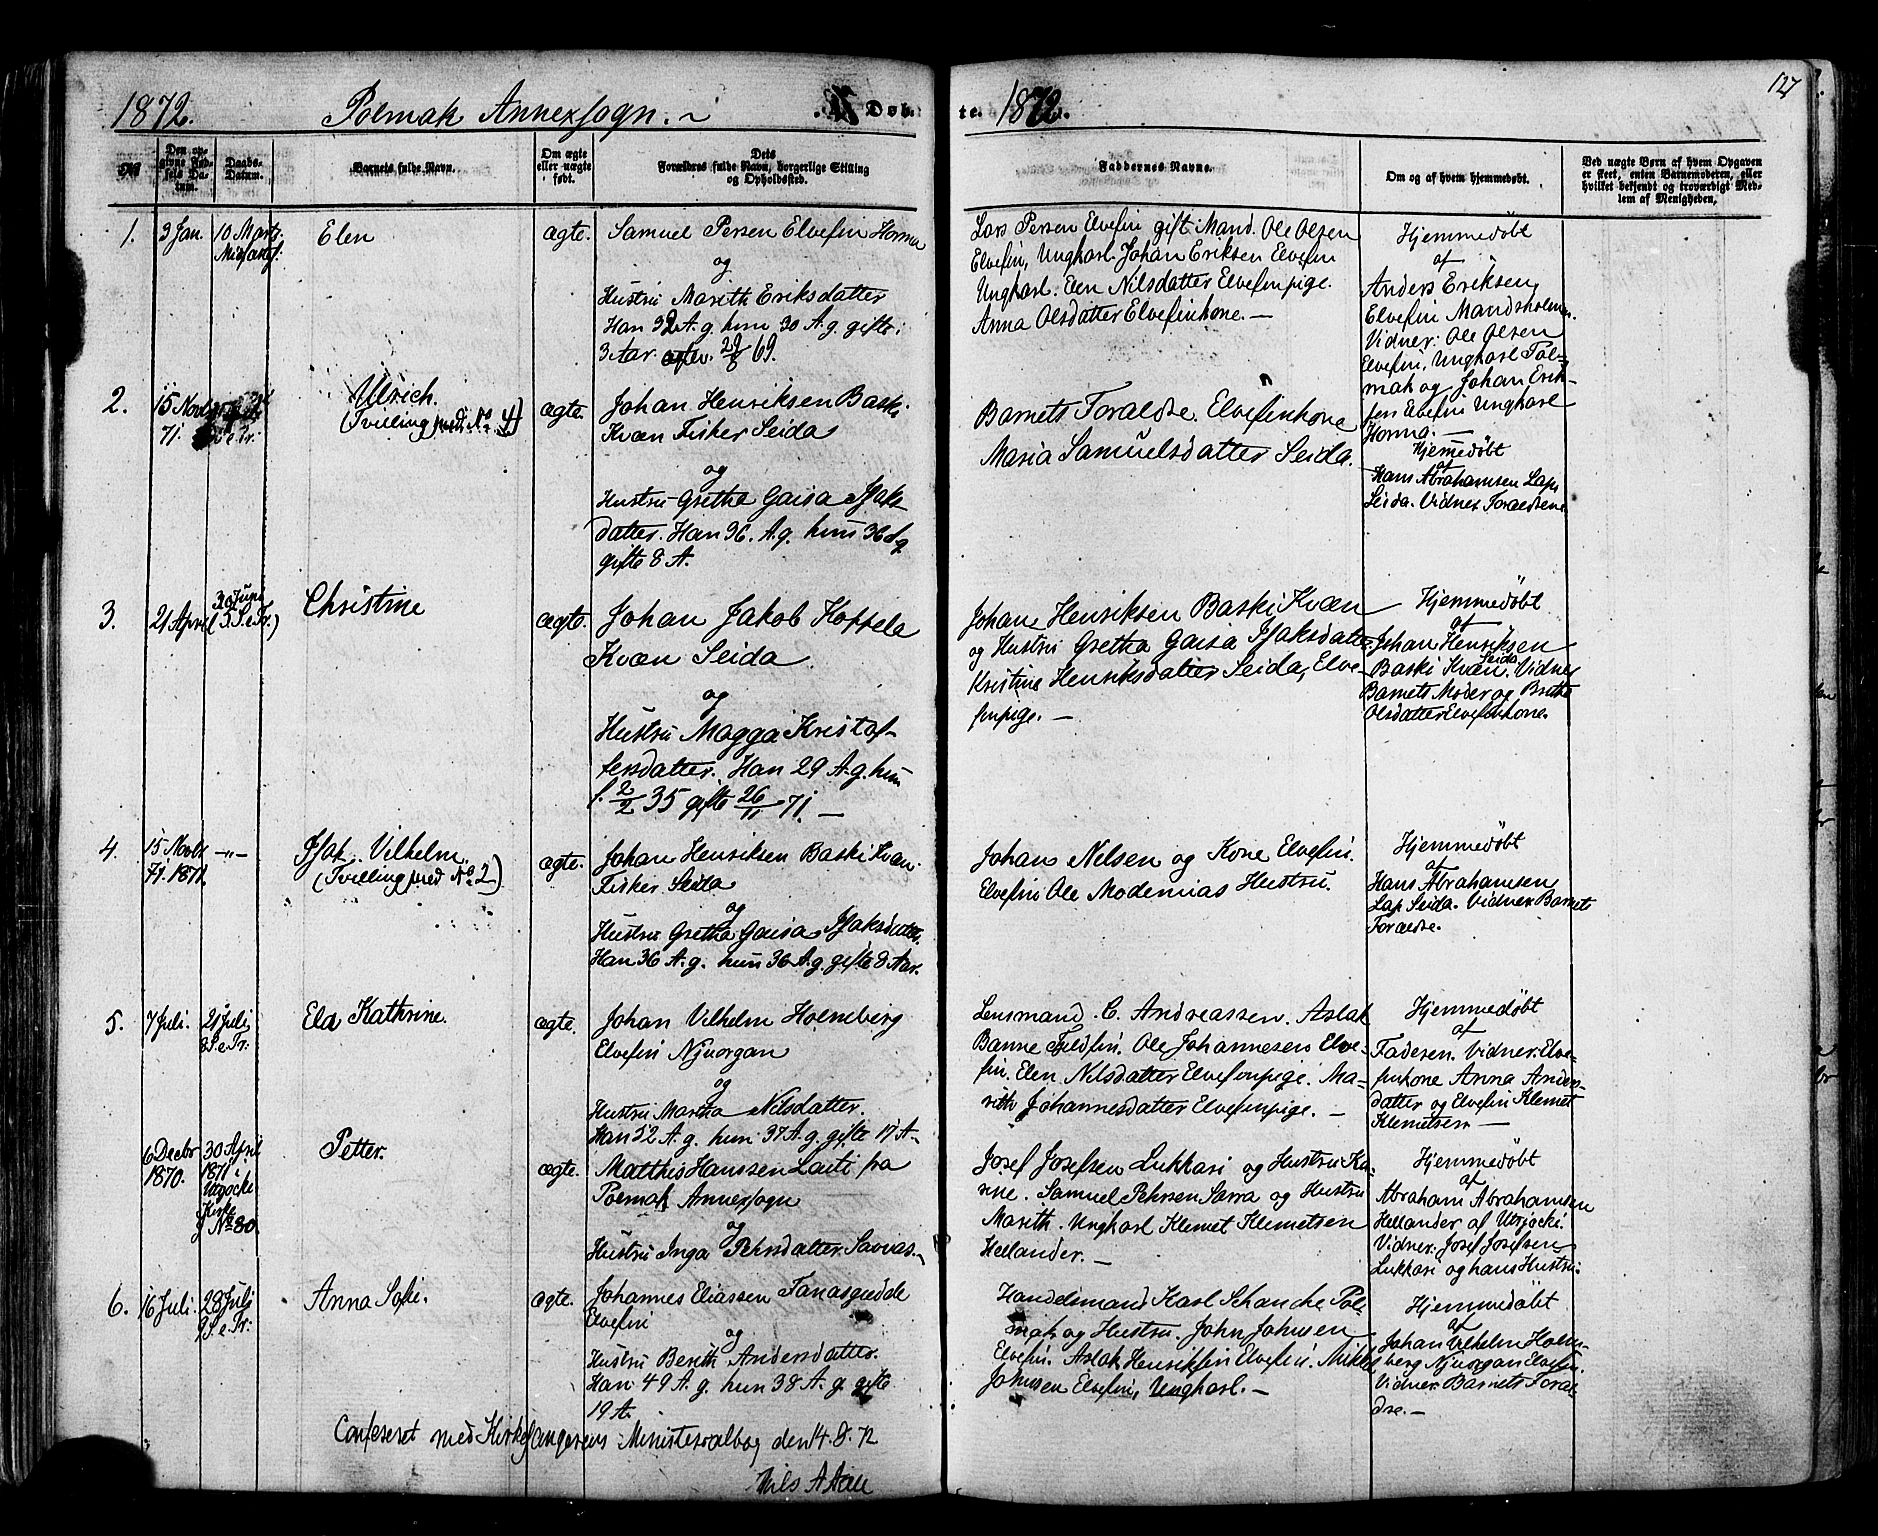 127
1872. Polmak Annexsogn. Døb-
te. 1872.
No
Den op-
givne Fød-
sels Da-
tum.
Daabs-
Datum.
Barnets fulde Navn.
Om ægte
eller uægte
født.
Dets
Forældres fulde Navn, borgerlige Stilling
og Opholdssted.
Faddernes Navne.
Om og af hvem hjemmedøbt.
Ved uægte Børn af hvem Opgaven
er skeet, enten Barnemoderen, eller
hvilket bekjendt og troværdigt Med-
lem af Menigheden.
1.
3 Jan.
10 Marts
Midfastsf.
Elen
ægte.
Samuel Persen Elvefin Horma
og
Hustru Marith Eriksdatter
Han 32 A. g. hun 30 A. g. gifte
3 Aar. 69.
Lars Persen Elvefin gift Mand. Ole Olsen
Elvefin, Ungkarl. Johan Eriksen Elvefin
Ungkarl. Elen Nilsdatter Elvefinpige.
Anna Olsdatter Elvefinkone. —
Hjemmedøbt
af
Anders Eriksen
Elvefin Mandsholmen.
Vidner: Ole Olsen
Elvefin, Ungkarl Pol-
mak og Johan Erik-
sen Elvefin Ungkarl
Horma. —
2.
15 Novbr
71.
Ulrich.
(Tvilling med No. 4)
ægte.
Johan Henriksen Baski
Kvæn Fisker Seida
og
Hustru Gretha Gaisa Isaks-
datter. Han 36. A. g. hun 36 A g
gifte 8 A.
Barnets Forældre. Elvefinkone
Maria Samuelsdatter Seida.
Hjemedøbt
af
Hans Abrahamsen Lap
Seida. Vidner Forældrene
3.
21 April
30 Juni
(5. S. e. Tr.)
Christine
ægte.
Johan Jakob Koppela
Kvæn Seida
og
Hustru Magga Kristof-
fersdatter. Han 29 A. g. hun
f. 2/2 35 gifte 26/11 71. —
Johan Henriksen Baski Kvæn
og Hustru Gretha Gaisa Isaksdatter
Kristine Henriksdatter Seida, Elve-
finpige. —
Hjemmedøbt
af
Johan Henriksen
Seida
Baski Kvæn. Vidner
Barnets Moder og Brita
Olsdatter Elvefinkone.
4.
15 Novbr
71. 1871.
—„—
Isak Vilhelm.
(Tvilling med No. 2)
ægte.
Johan Henriksen Baski Kvæn.
Fisker Seida
og
Hustru Gretha Gaisa Isaksdatter.
Han 36 A. g. hun 36 A. g. gifte 8 Aar.
Johans Nilsen og Kone Elvefin.
Elvefin Ole Modenias Hustru.
Hjemmedøbt
af
Hans Abrahamsen
Lap Seida. Vidner. Barnets
Forældre.
5.
7 Juli.
21 Juli
8 S. e. Tr.
Ela Kathrine.
ægte.
Johan Vilhelm Holmberg
Elvefin Njuorgan
og
Hustru Martha Nilsdatter.
Han 52 A. g. hun 37 A. g. gifte 17 A-
Lensmand C. Andreassen. Aslak
Banne Fjeldfin. Ole Johannesen Elve-
fin. Elen Nilsdatter Elvefinpige. Ma-
rith Johannesdatter Elvefinpige. —
Hjemmedøbt
af
Faderen. Vidner. Elve-
finkone Anna Anders-
datter og Elvefin Klemet
Klemetsen —
6 Decbr
1870.
30 April
1871 i
Utsjocki
Kirke
No. 80.
Petter.
ægte.
Matthis Hanssen Laiti fra
Polmak Annexsogn
og
Hustru Inga Pehrsdatter Savvas.
Josef Josefsen Lukkari og Hustru Ka-
rine. Samuel Pehrsen Sarra og Hustru
Marith. Ungkarl Klemet Klemetsen
Hellander. —
Hjemmedøbt
af
Abraham Abrahamsen
Hellander af Utsjocki.
Vidner. Josef Josefsen
Lukkari og hans Hustru.
6.
16 Juli.
28 Juli
9 S. e. Tr.
Anna Sofie.
ægte.
Johannes Eliassen Tanasguedde
Elvefin
og
Hustru Berith Andersdatter.
Han 49 A. g. hun 38 A. g. gifte
19 A.
Handelsmand Karl Schanche Pol-
mak og Hustru. John Johnsen
Elvefin. Aslak Henriksen Elvefin. Mikkel
Johnsen Elvefin, Ungkarl. —
Hjemmedøbt
af
Johan Vilhelm Holm-
berg Njuorgan Elvefin.
Vidner Barnets Foræl-
dre. —
Confereret med Kirkesangerens Ministerialbog den 14. 8. 72
Nils A Aall